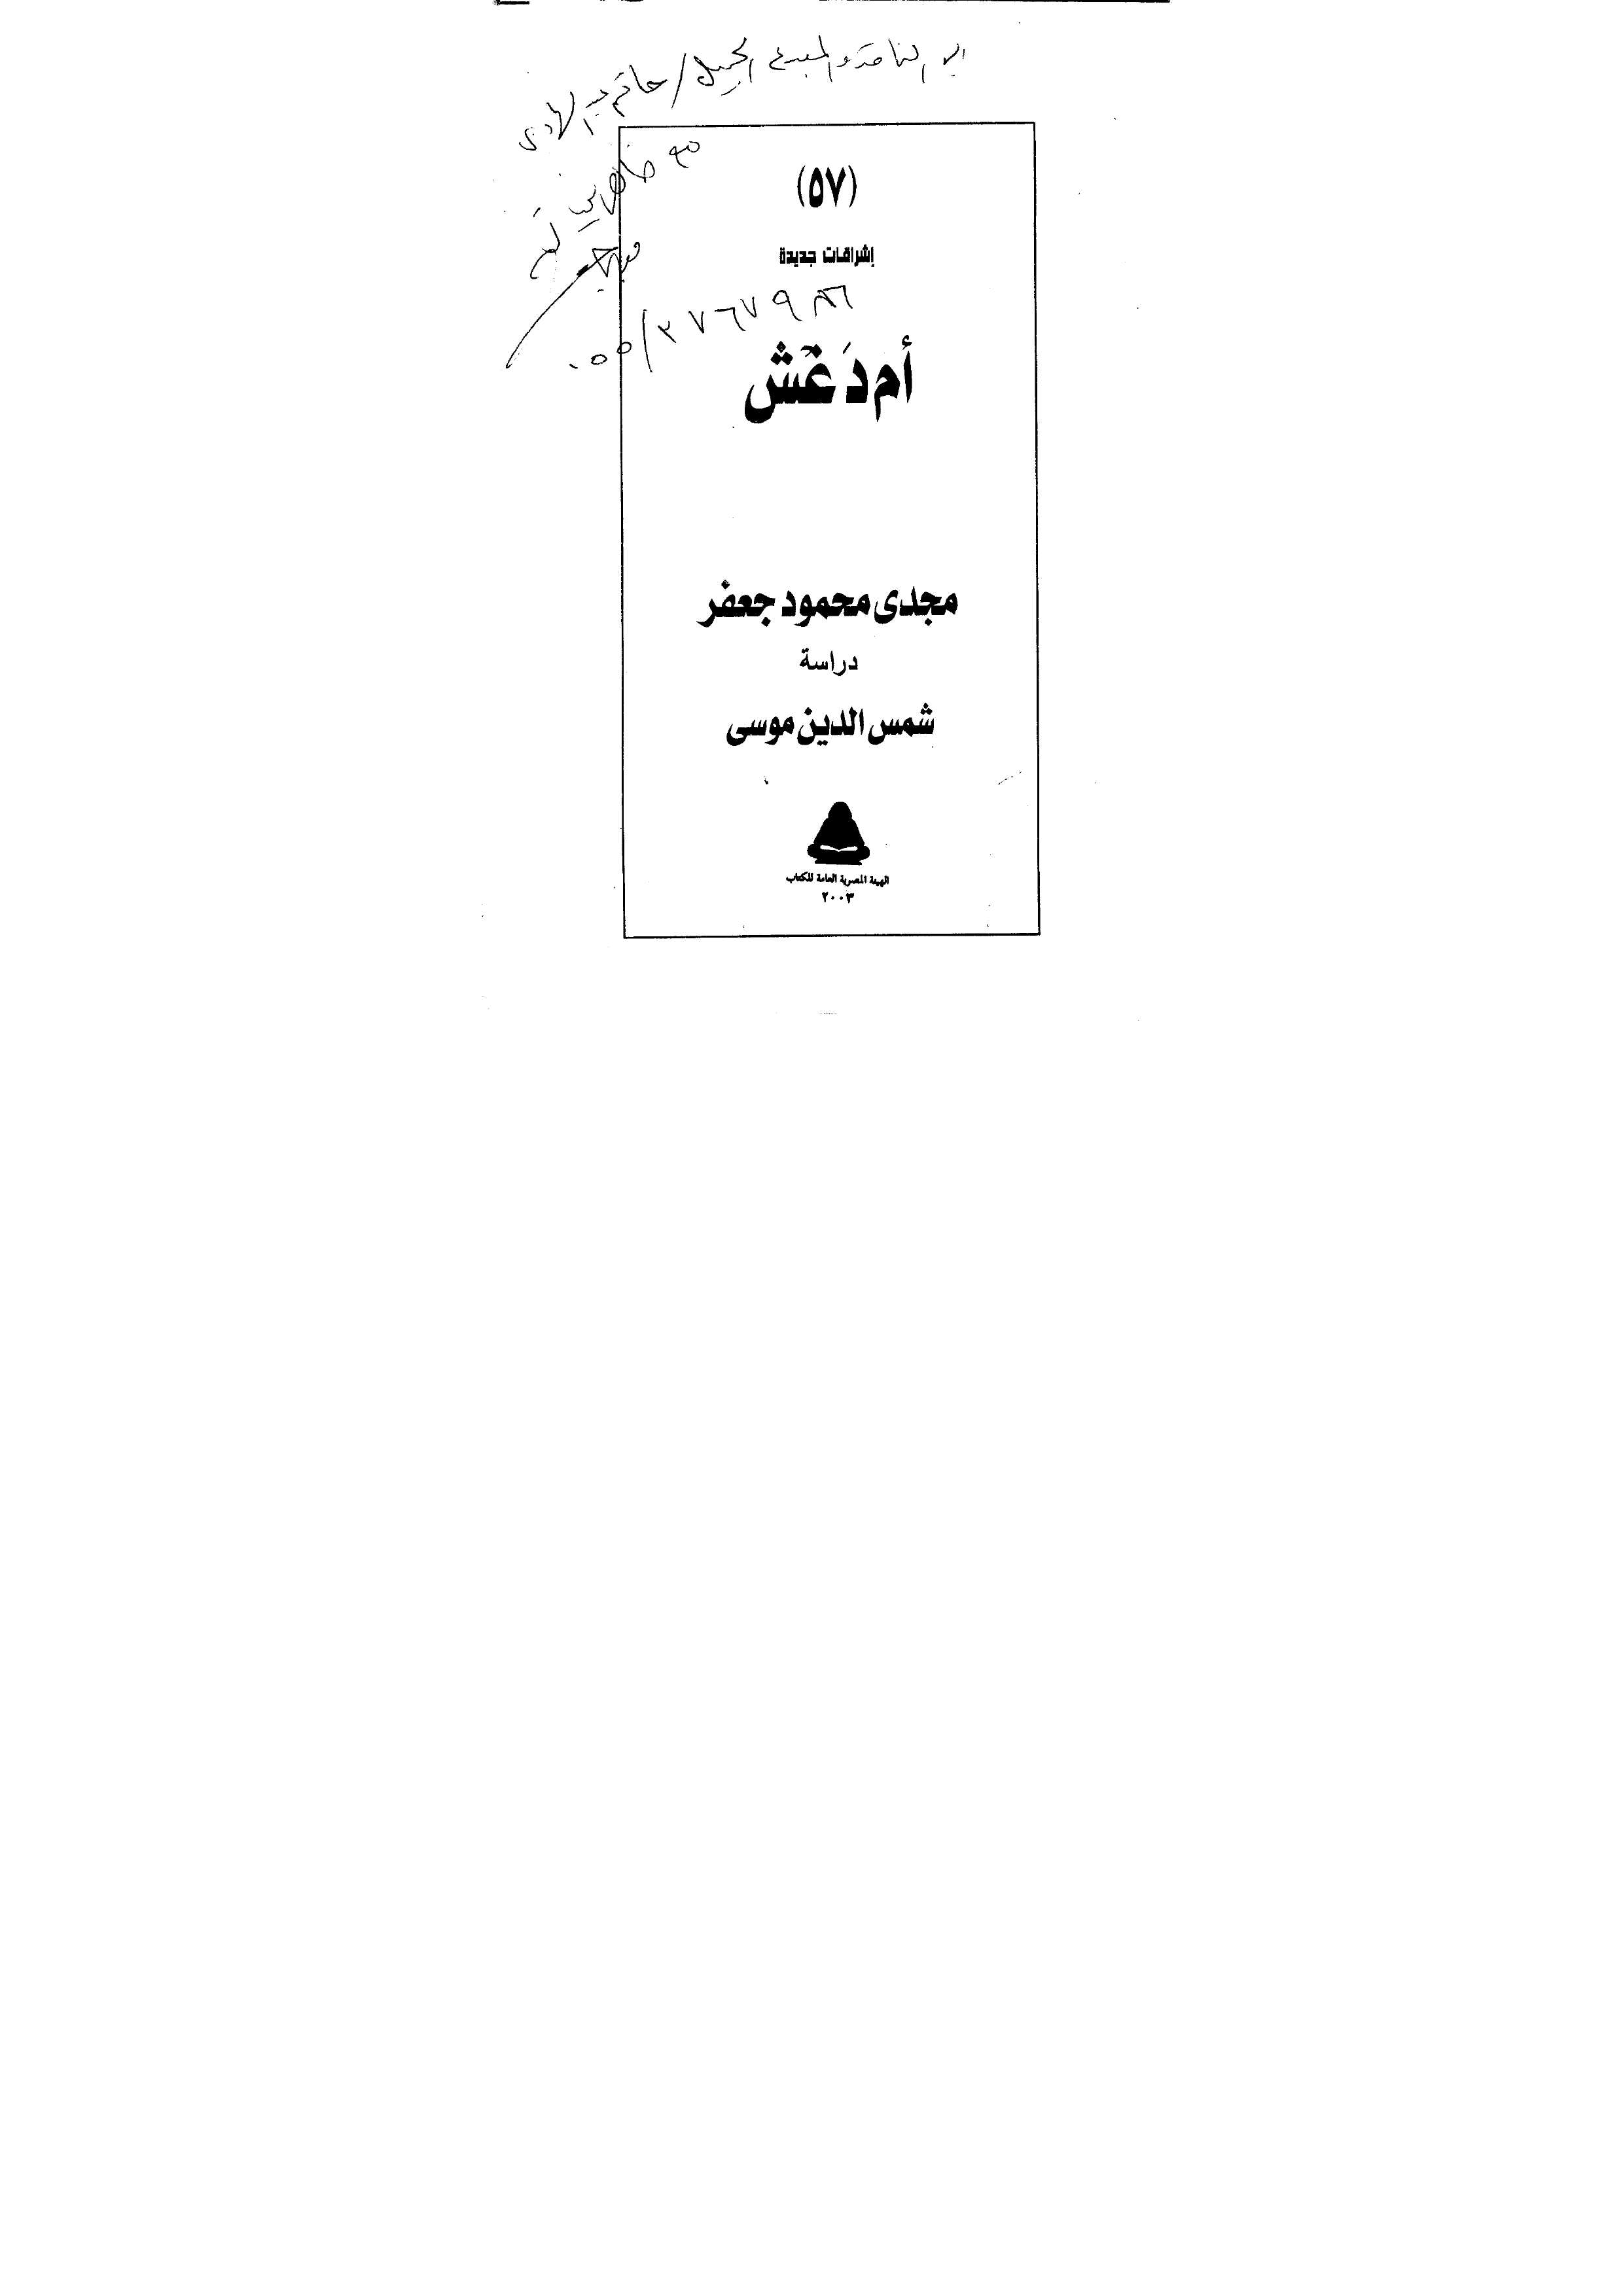 إلى الناقد والمبدع الجميل / حاتم عبد الهادى
مع خالص
(٥٧)
إشراقات جديدة
٠٥٥/٣٧٦٧٩٨٦
أم دَغَش
مجدى محمود جعفر
دراسة
شمس الدين موسى
الهيئة المصرية العامة للكتاب
٢٠٠٣